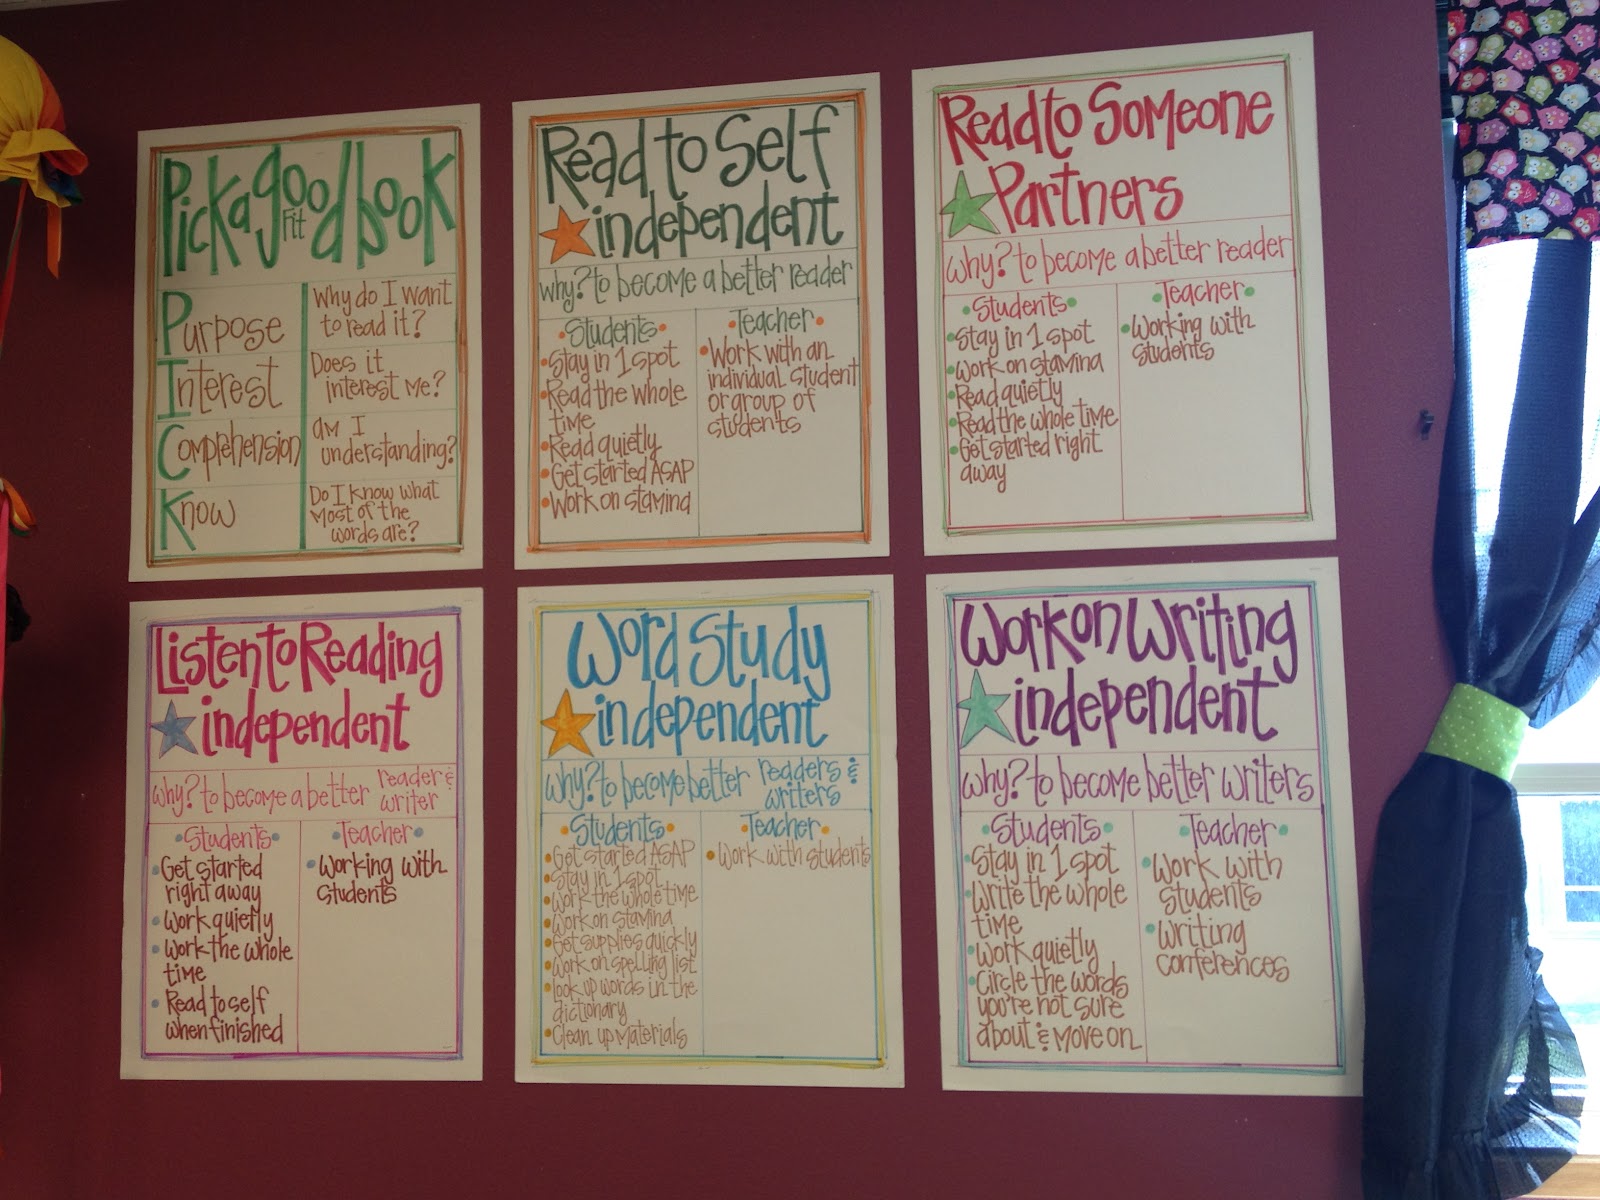 Pick a good fit book
Purpose
Why do I want
to read it?
Interest
Does it
interest me?
Comprehension
am I
understanding?
Know
Do I know what
most of the
words are?
Read to Self
independent
why? to become a better reader
Students
Stay in 1 spot
Read the whole
time
Read quietly
Get started ASAP
Work on stamina
Teacher
Work with an
individual student
or group of
students
Read to Someone
Partners
why? to become a better reader
Students
Stay in 1 spot
Work on stamina
Read quietly
Read the whole time
Get started right
away
Teacher
Working with
students
Listen to Reading
independent
why? to become a better reader &
writer
Students
Get started
right away
Work quietly
Work the whole
time
Read to self
when finished
Teacher
Working with
students
Word Study
independent
why? to become better readers &
writers
Students
Get started ASAP
Stay in 1 spot
Work the whole time
Work on stamina
Get supplies quickly
Work on spelling list
look up words in the
dictionary
Clean up materials
Teacher
Work with students
Work on Writing
independent
why? to become better writers
Students
Stay in 1 spot
Write the whole
time
Work quietly
Circle the words
you're not sure
about & move on
Teacher
Work with
students
writing
conferences